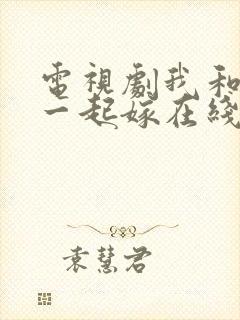 電視劇我和
一起嫁在綫
袁慧君